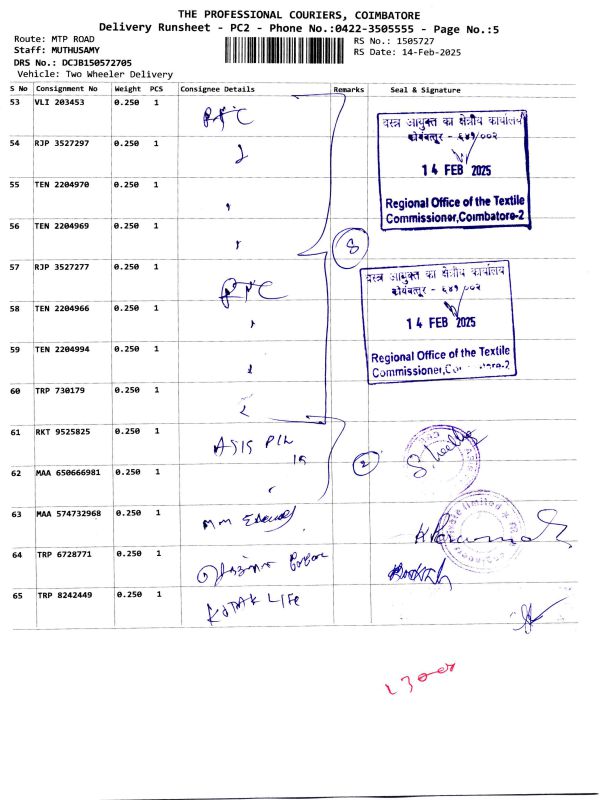 THE PROFESSIONAL COURIERS, COIMBATORE
Delivery Runsheet - PC2 - Phone No.:0422-3505555 - Page No.:5
Route: MTP ROAD
RS No.: 1505727
Staff: MUTHUSAMY
RS Date: 14-Feb-2025
DRS No.: DCJB150572705
Vehicle: Two Wheeler Delivery
S No Consignment No Weight PCS Consignee Details Remarks Seal & Signature
53 VLI 203453 0.250 1
54 RJP 3527297 0.250 1
55 TEN 2204970 0.250 1
56 TEN 2204969 0.250 1
57 RJP 3527277 0.250 1
58 TEN 2204966 0.250 1
59 TEN 2204994 0.250 1
60 TRP 730179 0.250 1
61 RKT 9525825 0.250 1
62 MAA 650666981 0.250 1
63 MAA 574732968 0.250 1 MM
64 TRP 6728771 0.250 1
65 TRP 8242449 0.250 1 KOTAK LIFE
8
2
वस्त्र आयुक्त का क्षेत्रीय कार्यालय
कोयंबत्तूर - ६४१/००२
14 FEB 2025
Regional Office of the Textile
Commissioner,Coimbatore-2
वस्त्र आयुक्त का क्षेत्रीय कार्यालय
कोयंबत्तूर - ६४१/००२
14 FEB 2025
Regional Office of the Textile
Commissioner,